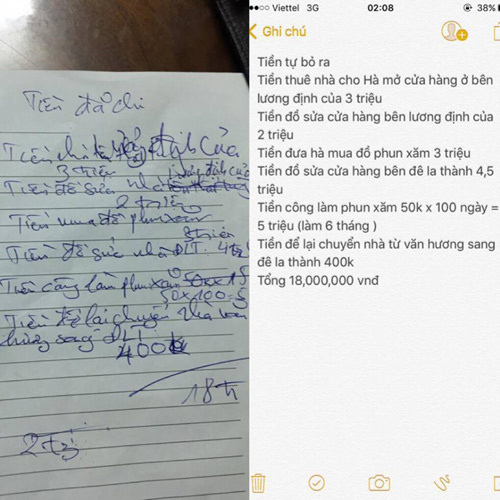 Tiền đã chi
Tiền
định Của
3 triệu
Tiền đồ sửa nhà
2 triệu
Tiền mua đồ phun xăm
3 triệu
Tiền đồ sửa nhà ĐLT. 4tr
Tiền công làm phun xăm
50x100=5
Tiền để lại chuyển nhà văn
hương sang ĐLT
400k
18tr
Viettel 3G 02:08 38%
Ghi chú
Tiền tự bỏ ra
Tiền thuê nhà cho Hà mở cửa hàng ở bên
lương định của 3 triệu
Tiền đồ sửa cửa hàng bên lương định của
2 triệu
Tiền đưa hà mua đồ phun xăm 3 triệu
Tiền đồ sửa cửa hàng bên đê la thành 4,5
triệu
Tiền công làm phun xăm 50k x 100 ngày =
5 triệu (làm 6 tháng )
Tiền để lại chuyển nhà từ văn hương sang
đê la thành 400k
Tổng 18,000,000 vnđ